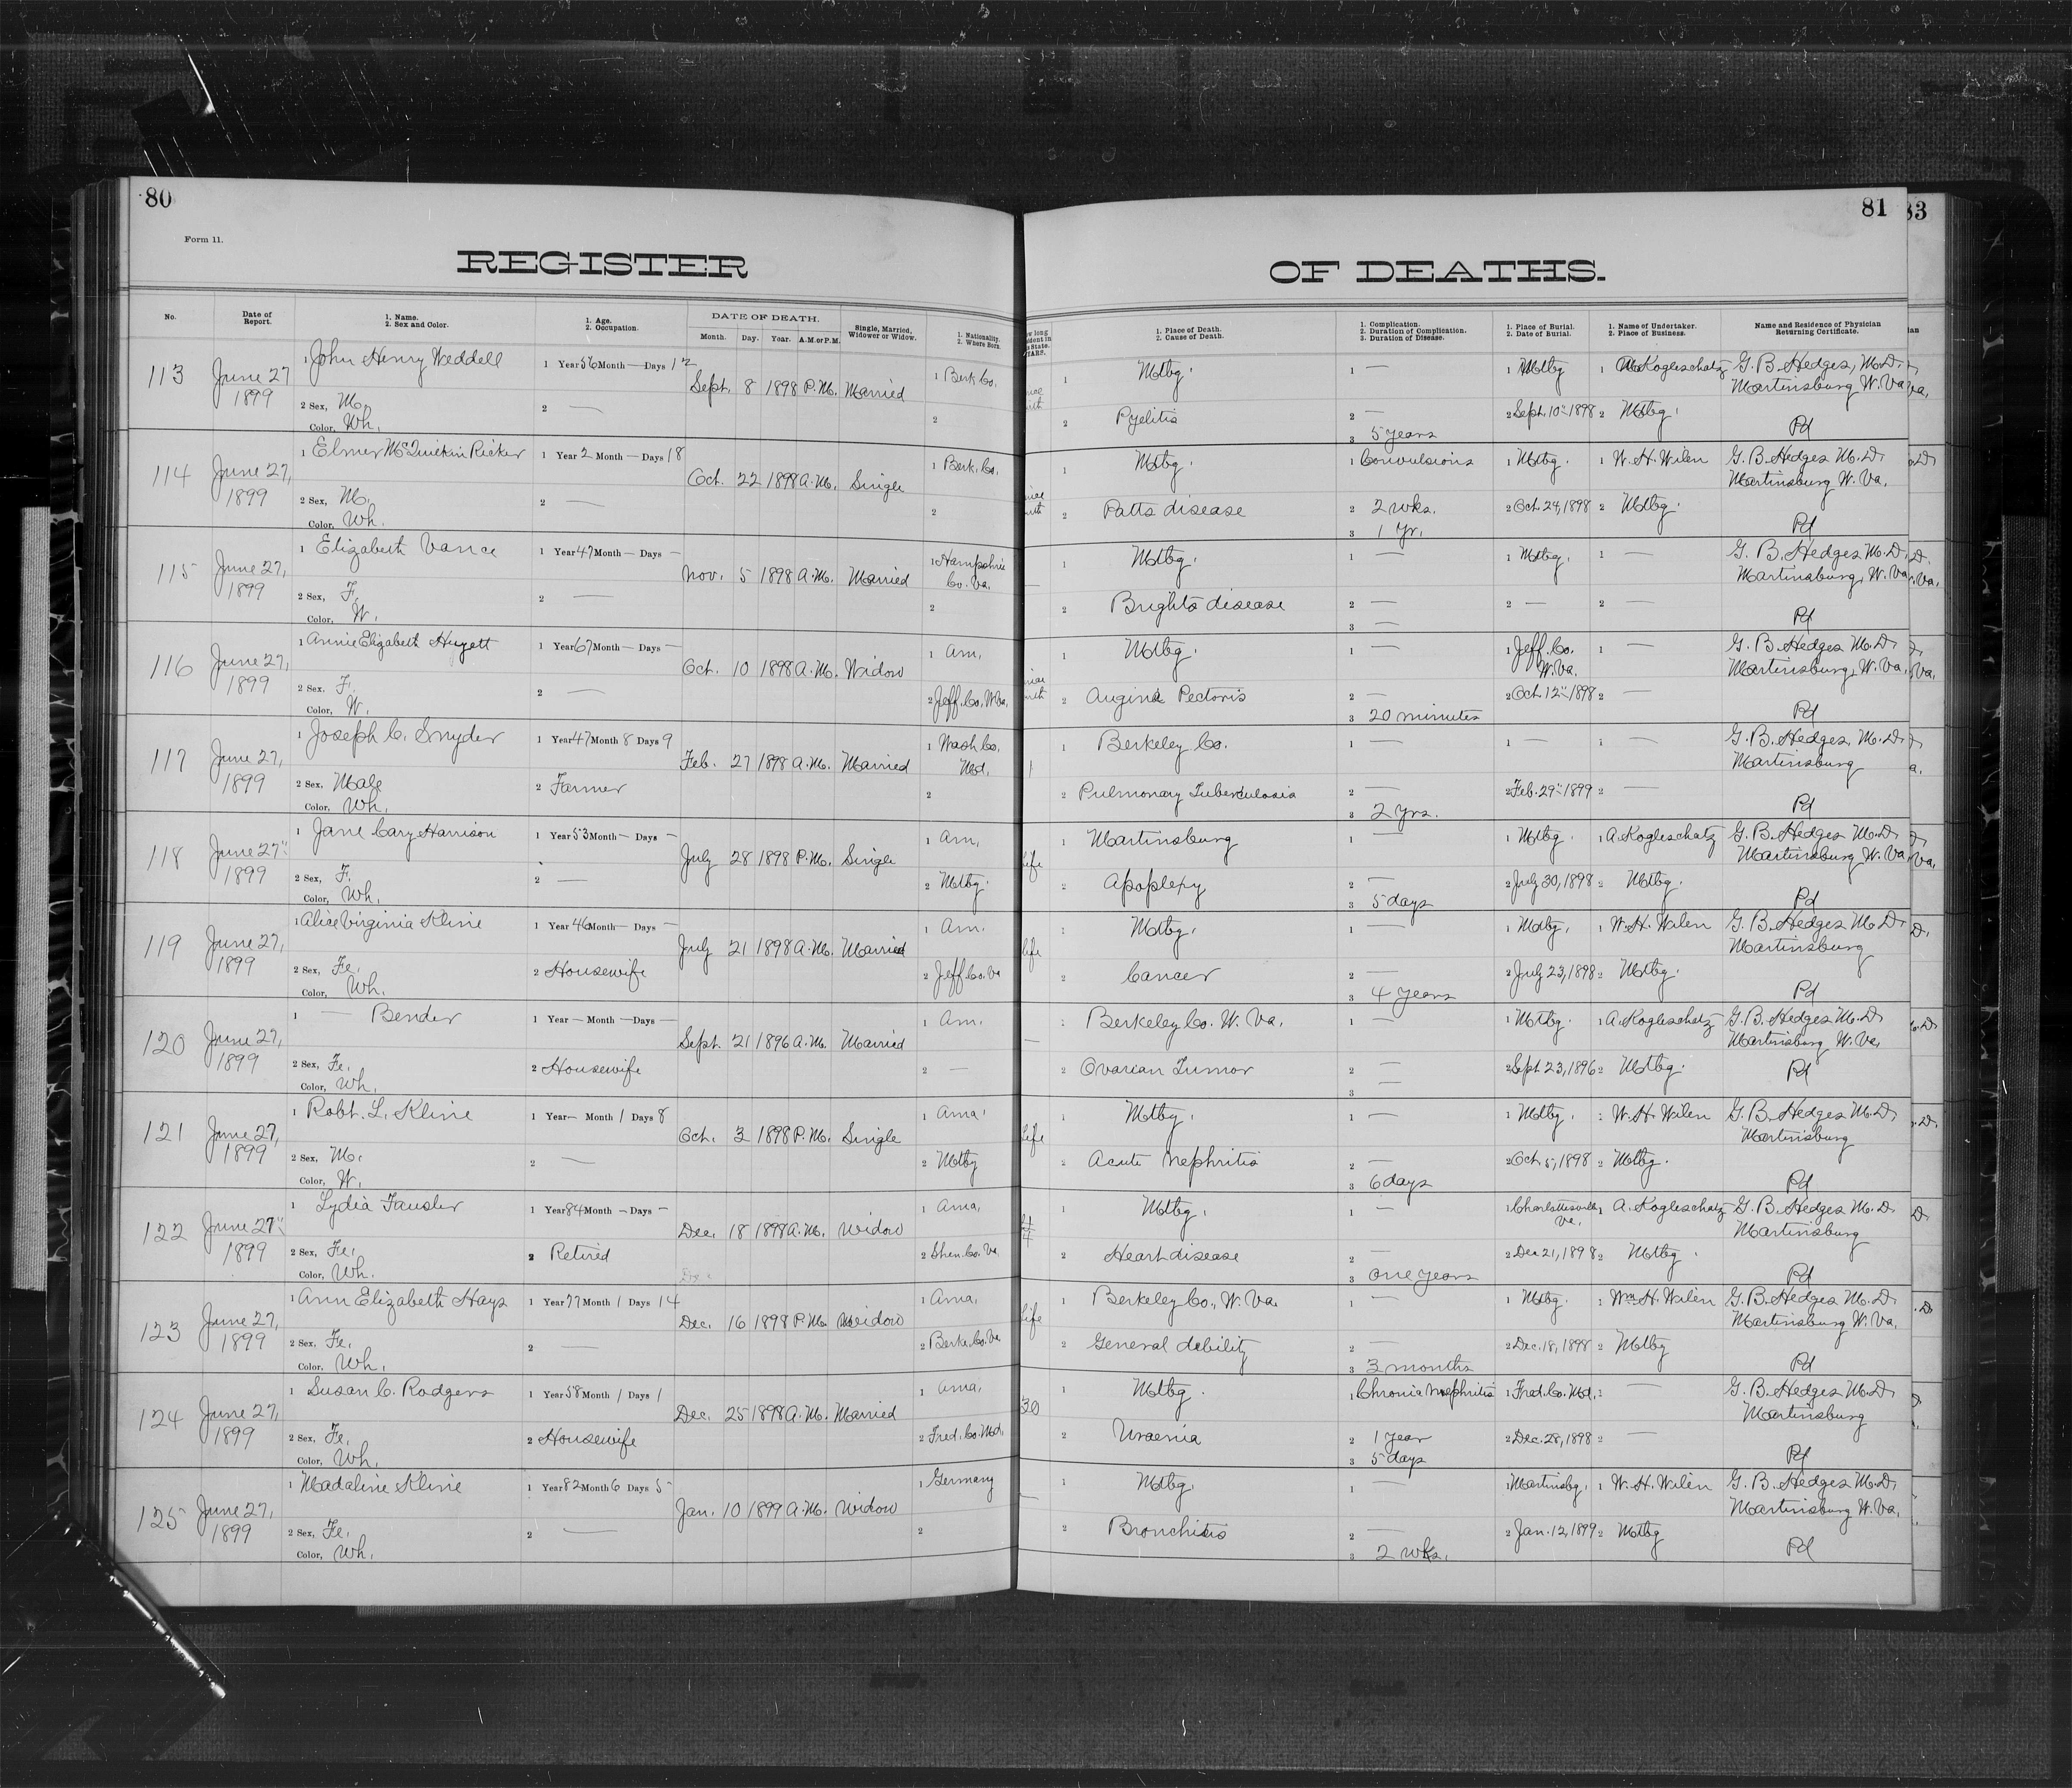 80
Form 11.
REGISTER
No.
Date of Report.
1. Name.
2. Sex and Color.
1. Age.
2. Occupation.
DATE OF DEATH.
Month. Day. Year. A.M. or P.M.
Single, Married, Widower or Widow.
1. Nationality.
2. Where Born.
113 June 27 1899
1 John Henry Weddell
2 Sex, M.
Color, Wh.
1 Year 56 Month — Days 12
2 —
Sept. 8 1898 P.M. Married
1 Berk Co.
2
114 June 27, 1899
1 Elmer McQuilkin Ricker
2 Sex, M.
Color, Wh.
1 Year 2 Month — Days 18
2 —
Oct. 22 1898 A.M. Single
1 Berk. Co.
2
115 June 27, 1899
1 Elizabeth Vance
2 Sex, F.
Color, W.
1 Year 47 Month — Days —
2 —
Nov. 5 1898 A.M. Married
1 Hampshire Co. Va.
2
116 June 27, 1899
1 Annie Elizabeth Huyett
2 Sex, F.
Color, W.
1 Year 67 Month — Days —
2 —
Oct. 10 1898 A.M. Widow
1 Am.
2 Jeff. Co. W. Va.
117 June 27, 1899
1 Joseph C. Snyder
2 Sex, Male
Color, Wh.
1 Year 47 Month 8 Days 9
2 Farmer
Feb. 27 1898 A.M. Married
1 Wash Co. Md.
2
118 June 27" 1899
1 Jane Cary Harrison
2 Sex, F.
Color, Wh.
1 Year 53 Month — Days —
2 —
July 28 1898 P.M. Single
1 Am.
2 Mtbg.
119 June 27, 1899
1 Alice Virginia Kline
2 Sex, Fe.
Color, Wh.
1 Year 46 Month — Days —
2 Housewife
July 21 1898 A.M. Married
1 Am.
2 Jeff Co. Va
120 June 27, 1899
1 — Bender
2 Sex, Fe.
Color, Wh.
1 Year — Month — Days —
2 Housewife
Sept. 21 1896 A.M. Married
1 Am.
2 —
121 June 27, 1899
1 Robt. L. Kline
2 Sex, M.
Color, W.
1 Year — Month 1 Days 8
2 —
Oct. 3 1898 P.M. Single
1 Ama.
2 Mtbg
122 June 27" 1899
1 Lydia Fansler
2 Sex, Fe.
Color, Wh.
1 Year 84 Month — Days —
2 Retired
Dec. 18 1898 A.M. Widow
1 Ama.
2 Shen. Co. Va
123 June 27, 1899
1 Ann Elizabeth Hays
2 Sex, Fe.
Color, Wh.
1 Year 77 Month 1 Days 14
2 —
Dec. 16 1898 P.M. Widow
1 Ama.
2 Berk. Co. Va
124 June 27, 1899
1 Susan C. Rodgers
2 Sex, Fe.
Color, Wh.
1 Year 58 Month 1 Days 1
2 Housewife
Dec. 25 1898 A.M. Married
1 Ama.
2 Fred. Co. Md.
125 June 27, 1899
1 Madaline Kline
2 Sex, Fe.
Color, Wh.
1 Year 82 Month 6 Days 5
2 —
Jan. 10 1899 A.M. Widow
1 Germany
2
81
83
OF DEATHS.
1. Place of Death.
2. Cause of Death.
1. Complication.
2. Duration of Complication.
3. Duration of Disease.
1. Place of Burial.
2. Date of Burial.
1. Name of Undertaker.
2. Place of Business.
Name and Residence of Physician Returning Certificate.
1 Mtbg.
2 Pyelitis
1 —
2 —
3 5 years
1 Mtbg
2 Sept. 10" 1898
1 Kogleschatz
2 Mtbg.
G. B. Hedges, M.D.
Martinsburg W. Va.
Pd
1 Mtbg.
2 Potts disease
1 Convulsions
2 2 wks.
3 1 Yr.
1 Mtbg.
2 Oct. 24, 1898
1 W. H. Wilen
2 Mtbg.
G. B. Hedges M.D.
Martinsburg W. Va.
Pd
1 Mtbg.
2 Brights disease
1 —
2 —
3 —
1 Mtbg.
2 —
1 —
2 —
G. B. Hedges M.D.
Martinsburg, W. Va.
Pd
1 Mtbg.
2 Angina Pectoris
1 —
2 —
3 20 minutes
1 Jeff. Co. W. Va.
2 Oct. 12" 1898
1 —
2 —
G. B. Hedges M.D.
Martinsburg, W. Va.
Pd
1 Berkeley Co.
2 Pulmonary Tuberculosis
1 —
2 —
3 2 yrs.
1 —
2 Feb. 29" 1899
1 —
2 —
G. B. Hedges, M.D.
Martinsburg
Pd
life
1 Martinsburg
2 Apoplexy
1 —
2 —
3 5 days
1 Mtbg.
2 July 30, 1898
1 A. Kogleschatz
2 Mtbg.
G. B. Hedges M.D.
Martinsburg W. Va.
Pd
life
1 Mtbg.
2 Cancer
1 —
2 —
3 4 years
1 Mtbg.
2 July 23, 1898
1 W. H. Wilen
2 Mtbg.
G. B. Hedges M.D.
Martinsburg
Pd
—
1 Berkeley Co. W. Va.
2 Ovarian Tumor
1 —
2 —
3 —
1 Mtbg.
2 Sept 23, 1896
1 A. Kogleschatz
2 Mtbg.
G. B. Hedges M.D.
Martinsburg W. Va.
Pd
Life
1 Mtbg.
2 Acute Nephritis
1 —
2 —
3 6 days
1 Mtbg.
2 Oct. 5, 1898
1 W. H. Wilen
2 Mtbg.
G. B. Hedges M.D.
Martinsburg
Pd
1 Mtbg.
2 Heart disease
1 —
2 —
3 one years
1 Charlottesville, Va.
2 Dec 21, 1898
1 A. Kogleschatz
2 Mtbg.
G. B. Hedges M.D.
Martinsburg
Pd
life
1 Berkeley Co., W. Va.
2 General debility
1 —
2 —
3 3 months
1 Mtbg.
2 Dec. 18, 1898
1 Wm. H. Wilen
2 Mtbg
G. B. Hedges M.D.
Martinsburg W. Va.
Pd
30
1 Mtbg.
2 Uraemia
1 Chronic Nephritis
2 1 year
3 5 days
1 Fred. Co. Md.
2 Dec. 28, 1898
1 —
2 —
G. B. Hedges M.D.
Martinsburg
Pd
—
1 Mtbg.
2 Bronchitis
1 —
2 —
3 2 wks.
1 Martinsbg.
2 Jan. 12, 1899
1 W. H. Wilen
2 Mtbg
G. B. Hedges M.D.
Martinsburg W. Va.
Pd